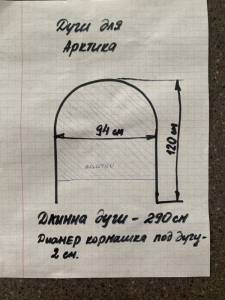 Дуги для
Арктика
94 см
120 см
Длинна дуги - 290 см
Диамер кормашка под дугу -
2 см.